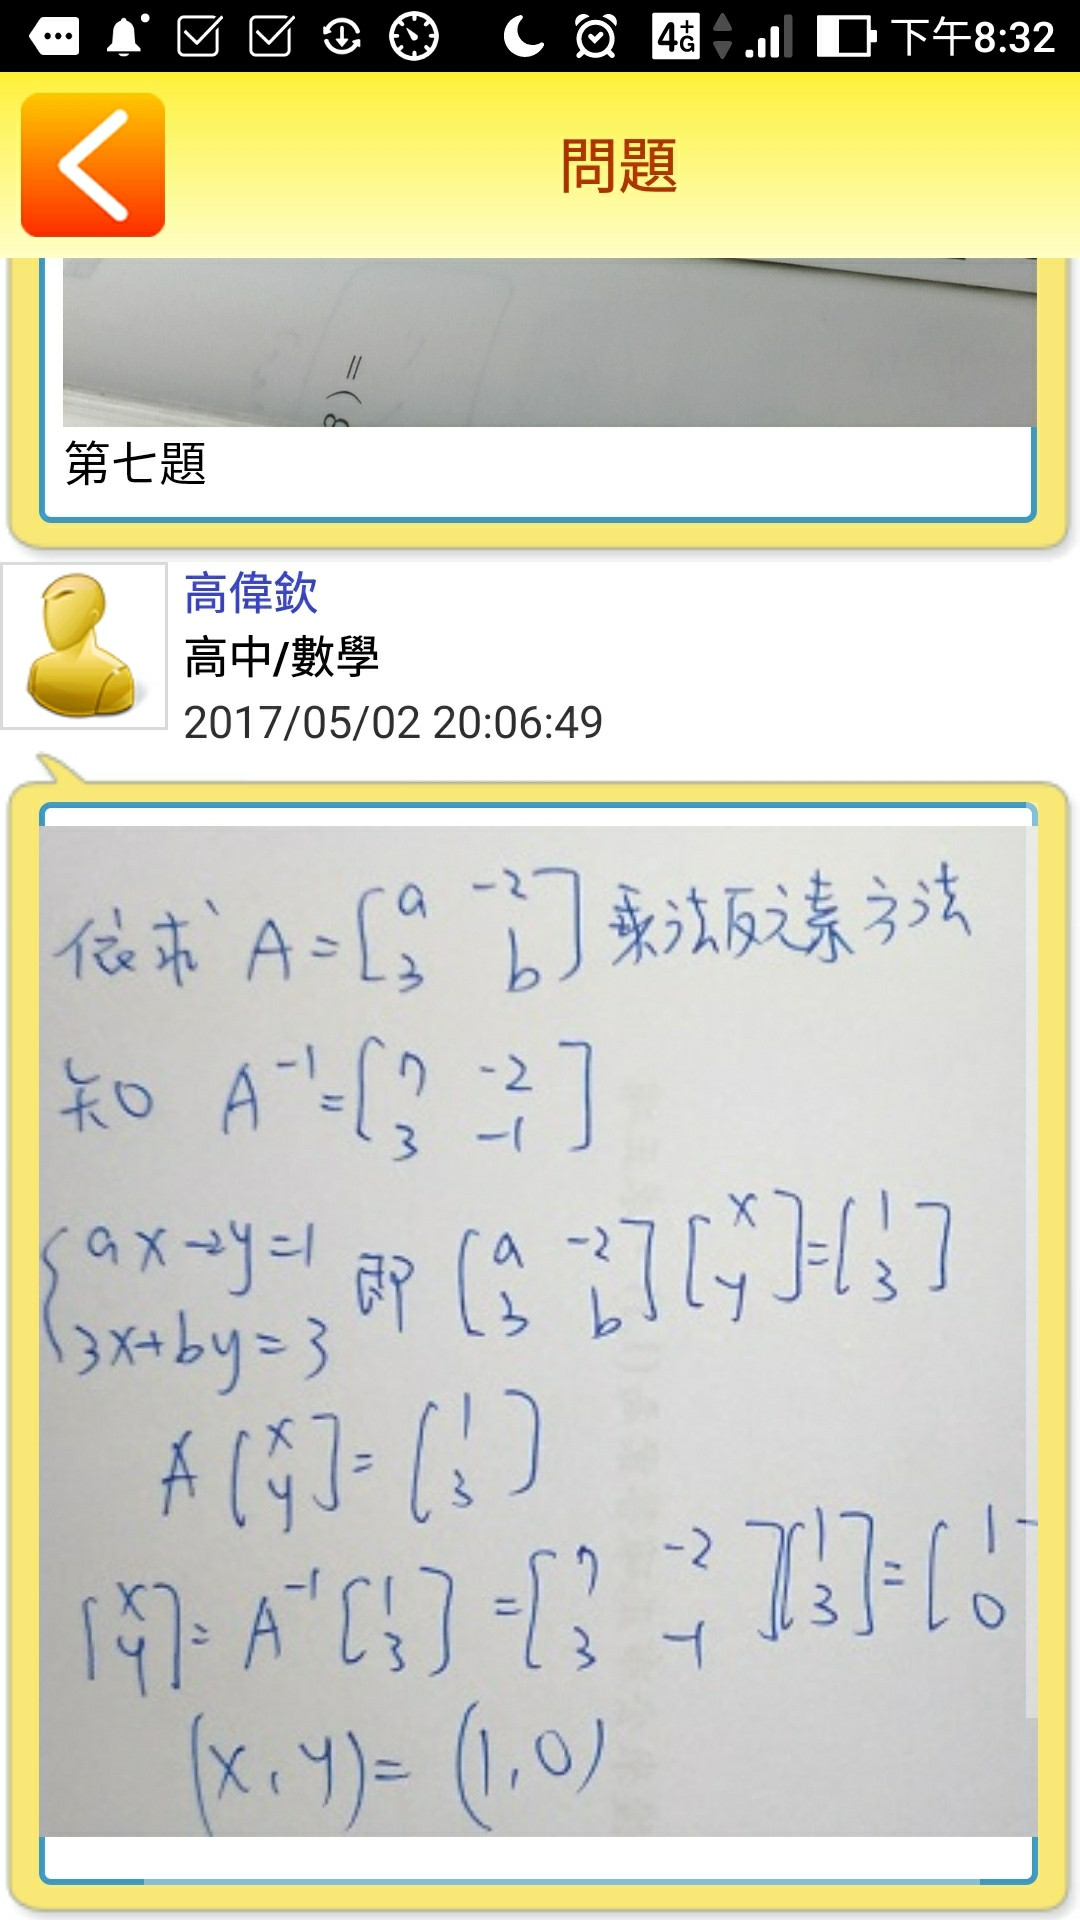 4G+ 下午8:32
問題
8) =
第七題
高偉欽
高中/數學
2017/05/02 20:06:49
依求 A = [a -2; 3 b] 乘法反元素方法
知 A⁻¹ = [7 -2; 3 -1]
{ax-2y=1; 3x+by=3 即 [a -2; 3 b] [x; y] = [1; 3]
A [x; y] = [1; 3]
[x; y] = A⁻¹ [1; 3] = [7 -2; 3 -1] [1; 3] = [1; 0]
(x, y) = (1, 0)